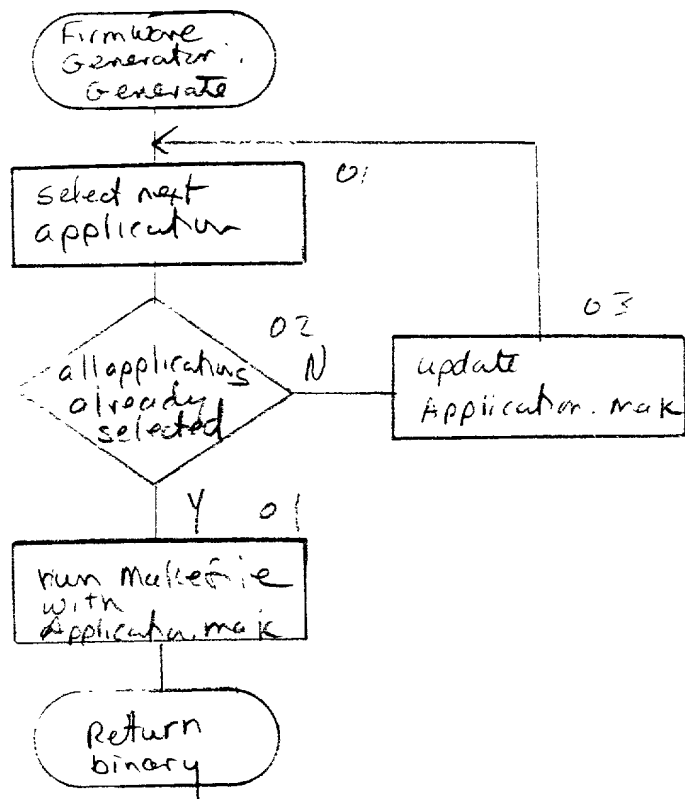 Firmware
Generator.
Generate
01
select next
application
02
all applications
already
selected
N
03
update
Application.mak
Y
01
run Makefile
with
Application.mak
Return
binary